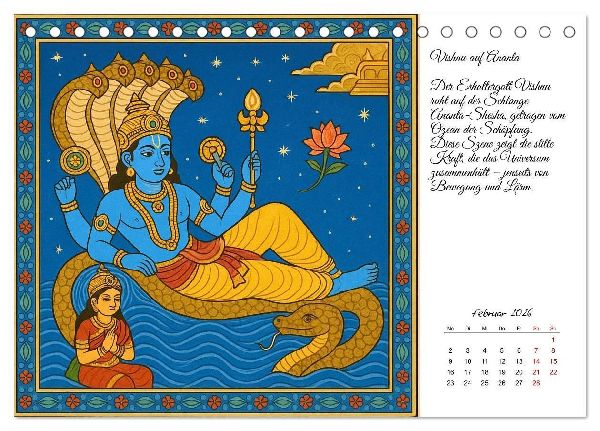 Vishnu auf Ananta
Der Erhaltergott Vishnu
ruht auf der Schlange
Ananta-Shesha, getragen vom
Ozean der Schöpfung.
Diese Szene zeigt die stille
Kraft, die das Universum
zusammenhält – jenseits von
Bewegung und Lärm
Februar 2026
Mo Di Mi Do Fr Sa So
1
2 3 4 5 6 7 8
9 10 11 12 13 14 15
16 17 18 19 20 21 22
23 24 25 26 27 28